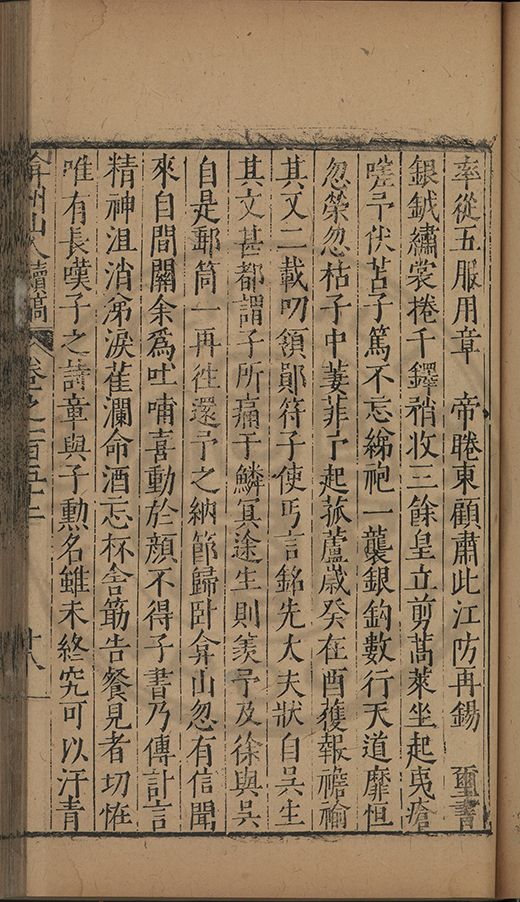 率從五服用章　帝睠東顧肅此江防再錫　璽書
銀鉞繡裳捲千鐸稍收三餘皇立剪蒿萊坐起夷瘡
嗟予伏苫子篤不忘綈袍一襲銀鈎數行天道靡恒
忽榮忽枯子中萋菲予起菰蘆歲癸在酉獲報襜褕
其又二載叨領鄖符子使丐言銘先大夫狀自吳生
其文甚都謂子所于鱗眞途生則羨予及徐與吳
自是郵筒一再徃還予之納節歸臥弇山忽有信聞
來自間關余爲吐哺喜動於顏不得子書乃傳訃言
精神沮消涕淚萑瀾命酒忘杯舍筯告餐見者切恠
唯有長嘆子之詩章與子勲名雖未終究可以汗青
弇州山人續稿　卷之一百五十二　廿八